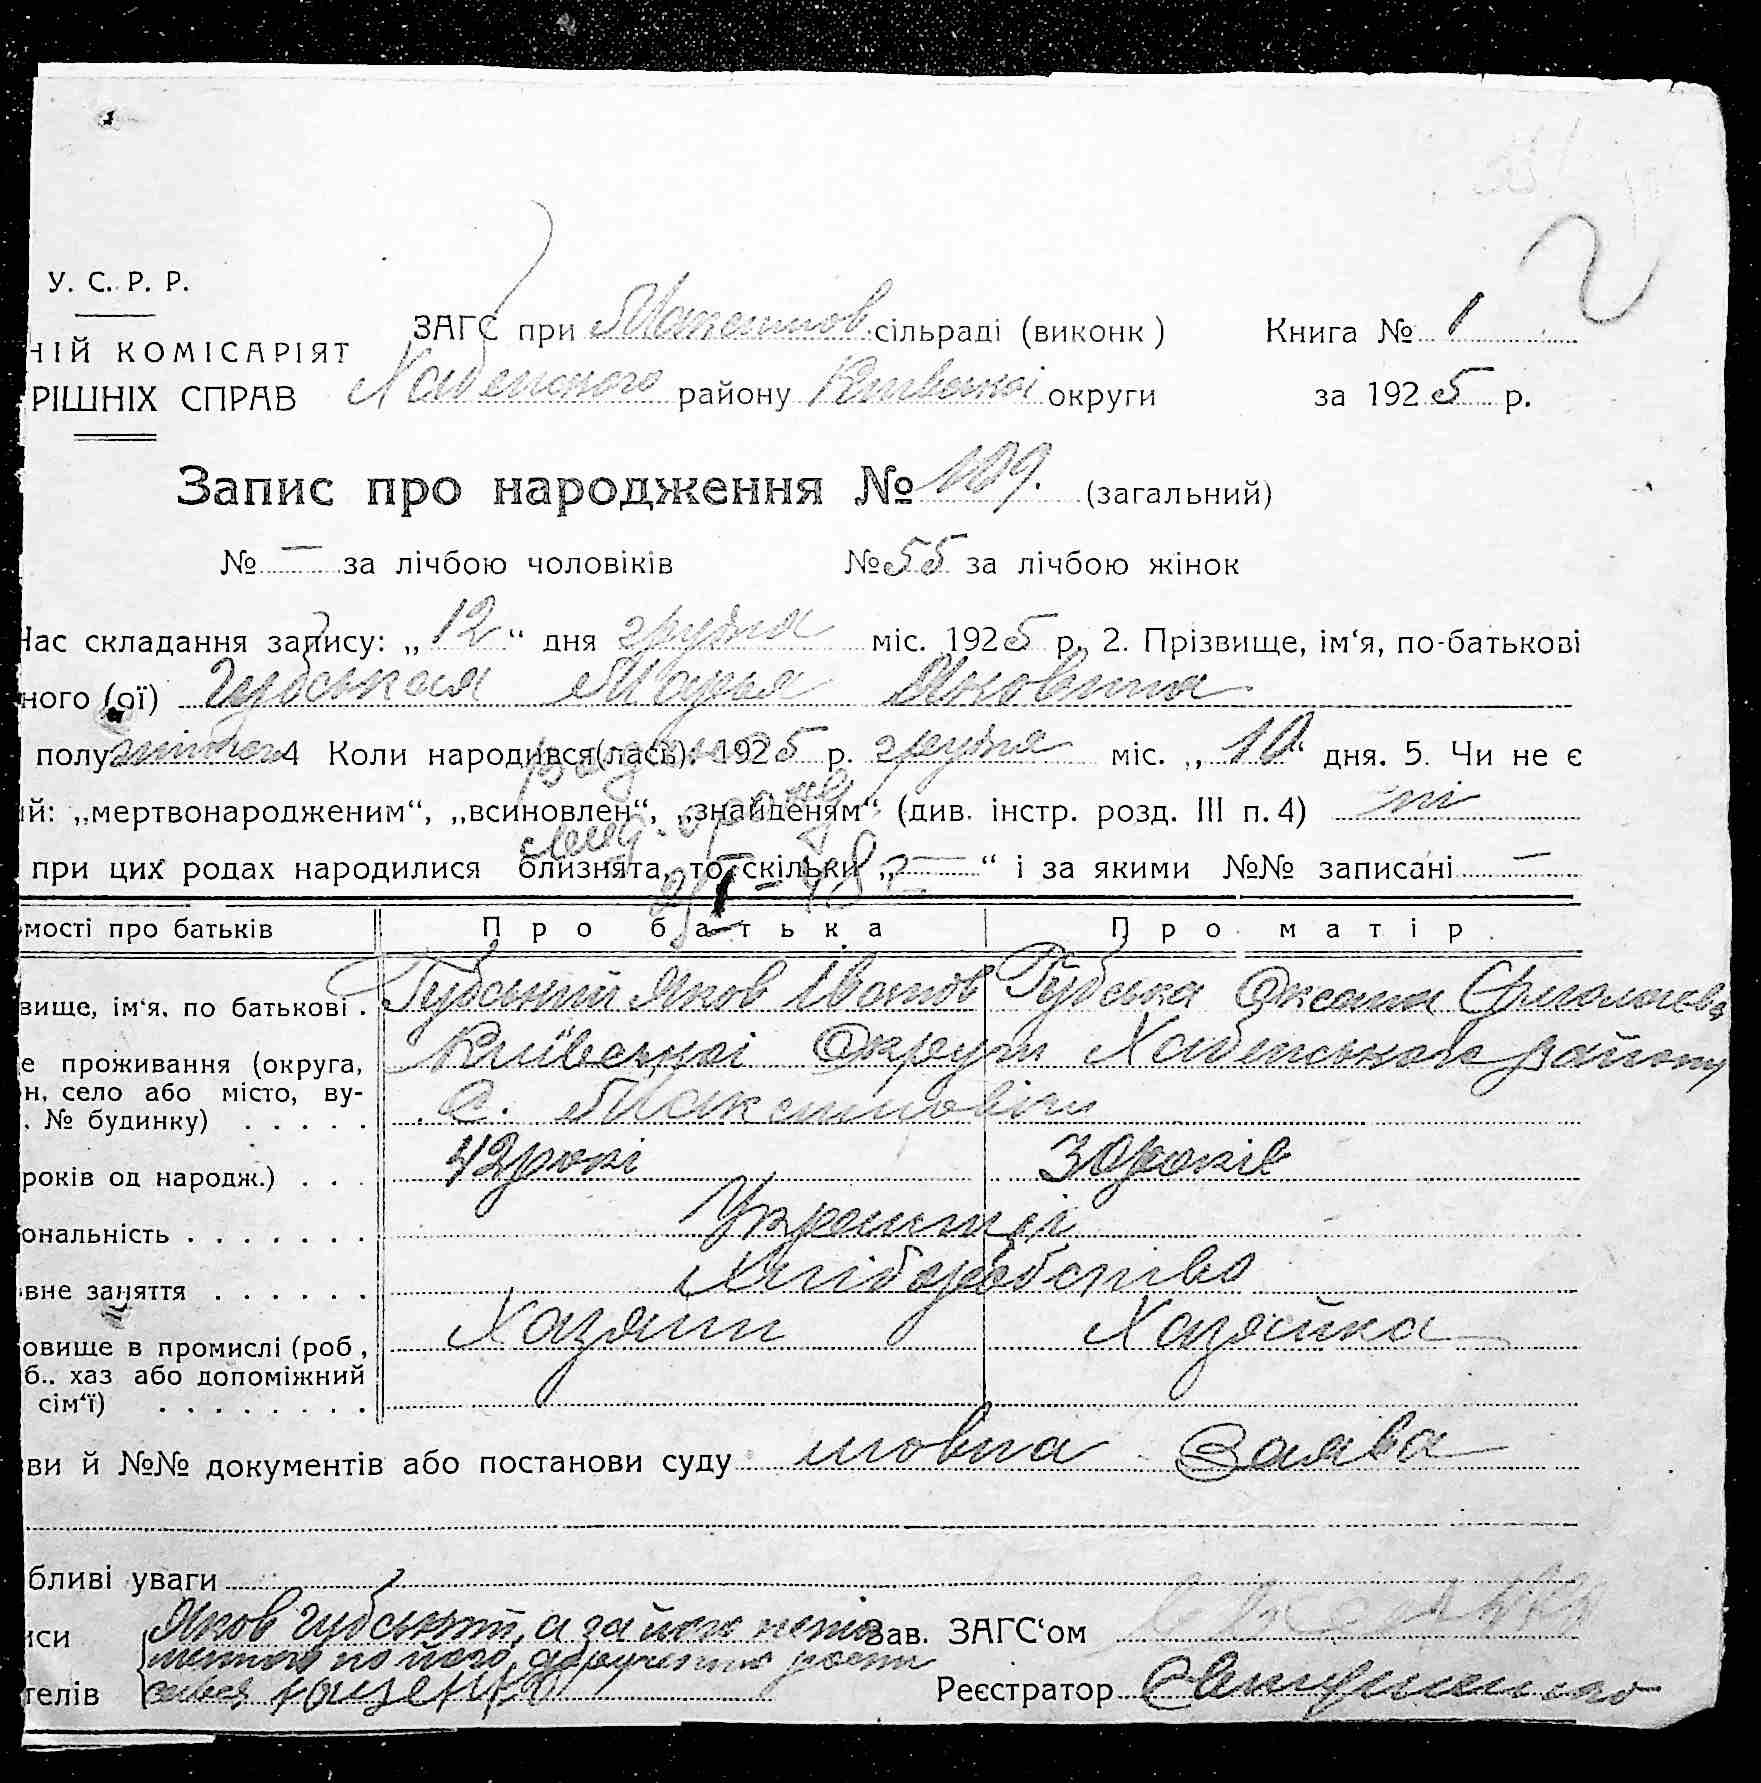 У. С. Р. Р.
НІЙ КОМІСАРІЯТ
РІШНІХ СПРАВ
ЗАГС при Максимов сільраді (виконк)
Хабенського району Київської округи
Книга № 1
за 1925 р.
Запис про народження № 109. (загальний)
№ — за лічбою чоловіків № 55 за лічбою жінок
Час складання запису: „12“ дня грудня міс. 1925 р. 2. Прізвище, ім‘я, по-батькові
ного (ої) Губськая Марья Яковина
полу жіночо 4 Коли народився(лась). 1925 р. грудня міс. „10“ дня. 5. Чи не є
ий: „мертвонародженим“, „всиновлен“, „знайденям“ (див. інстр. розд. III п. 4) ні
при цих родах народилися близнята, то скільки „—“ і за якими №№ записані —
мості про батьків Про батька Про матір.
вище, ім‘я, по батькові . Губський Яков Іванов Губська Оксана
е проживання (округа, Київської Округи Хабенського району
н, село або місто, ву- с. Максимовичи
. № будинку) . . . . .
років од народж.) . . . 42 рокі 30 років
ональність . . . . . . . Українці
вне заняття . . . . . . Хліборобство
овище в промислі (роб, Хазяин Хазяйка
б.. хаз або допоміжний
сім‘ї) . . . . . . . .
ви й №№ документів або постанови суду мовна Заява
бливі уваги
иси Яков Губський, а за його непи
менного по його дорученню роспи
телів
Зав. ЗАГС‘ом
Реєстратор